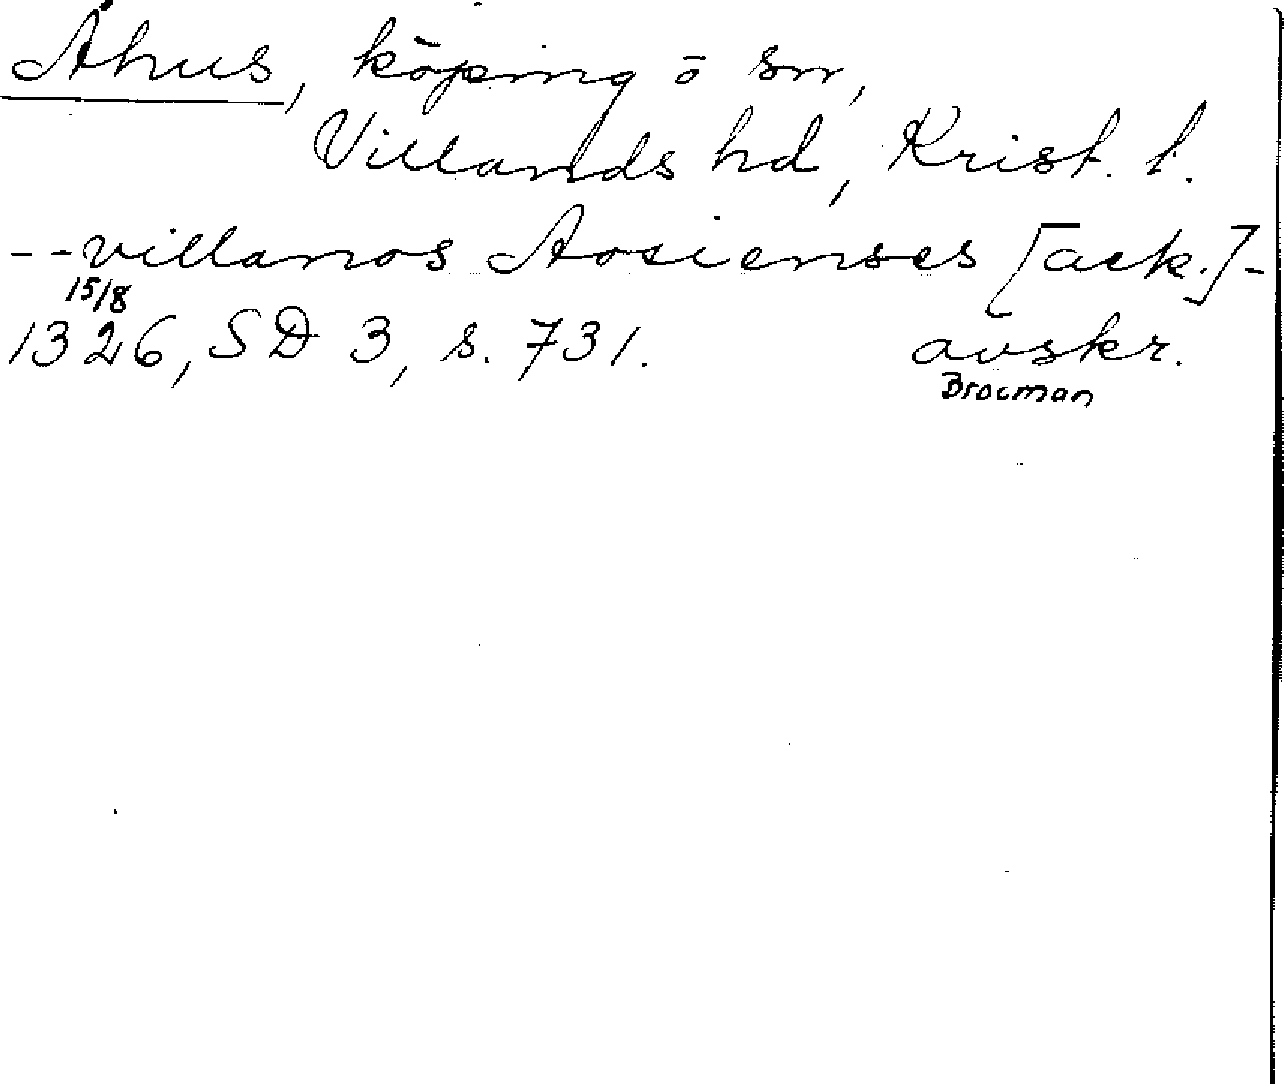 Åhus, köping o sn,
Villands hd, Krist. l.
-- villanos Aosienses [ack.] -
15/8
1326, SD 3, s. 731. avskr.
Brocman